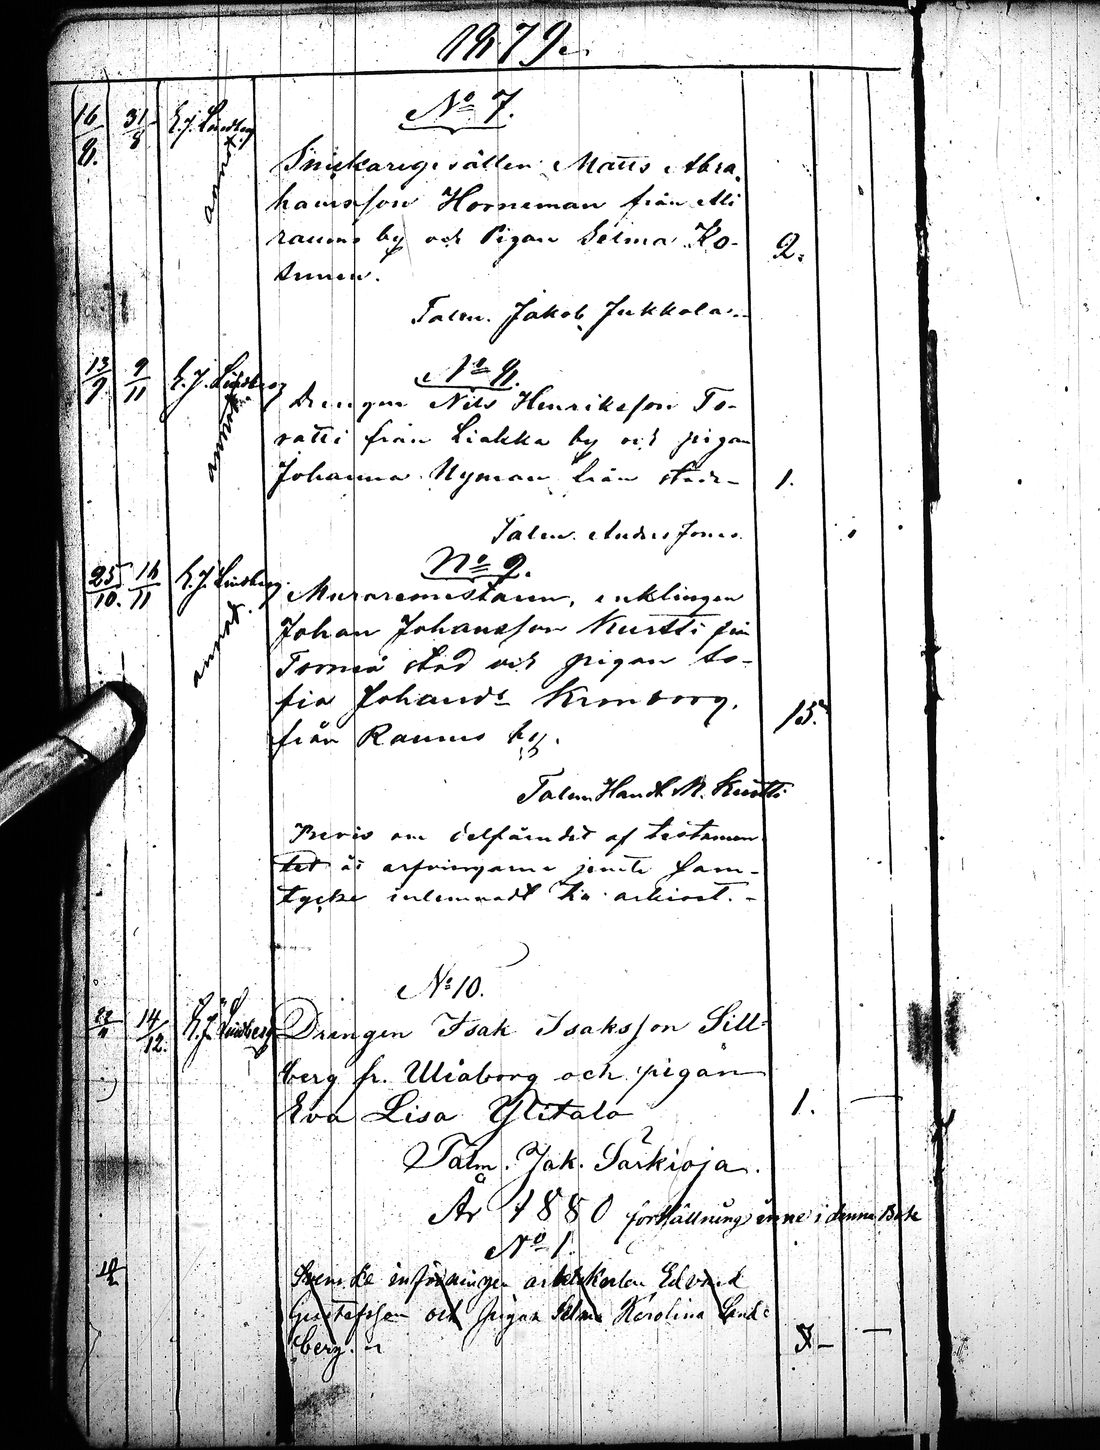 1879.
No 7.
16/8. 31/8 E. J. Lindberg
Snickaregesällen Matts Abra-
hamsson Horneman från Ali
raumo by och Pigan Selma Ko-
2.
Talem. Jakob Jukkola.
No 8.
13/9 9/11 E. J. Lindberg
Drengen Nils Henriksson To-
ratti från Liakka by och pigan
Johanna Nyman från
1.
Talem. Anders
No 9.
25/10. 16/11 E. J. Lindberg
Muraremestaren, enklingen
Johan Johansson Kurtti från
Torneå stad och pigan So-
fia Johansdr Kronborg,
från Raumo by.
15.
Talem Handl. M. Kurtti
Bevis om delfåendet af testamen
tet åt arfvingarne jemte sam-
tycke inlemnadt till arkivet. -
No 10.
14/12. E. J. Lindberg
Drängen Isak Isaksson Sill-
berg fr. Uleåborg och pigan
Eva Lisa Ylitalo
1. —
Talm. Jak. Särkioja.
År 1880 fortsättning inne i denna Bok
No 1.
Svenske inföningen arbetskarlen Edvard
Gustafsson och pigan Selma Karolina Lind-
berg.